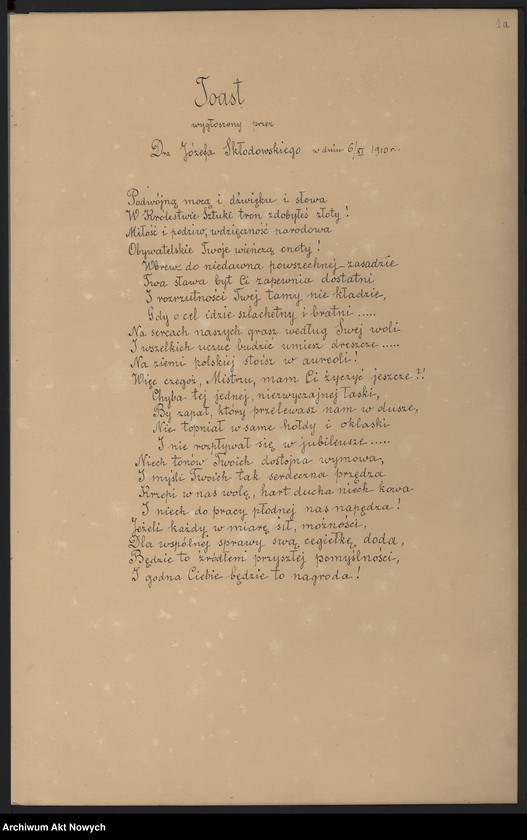 1a
Toast
wygłoszony przez
Dra Józefa Skłodowskiego w dniu 6/XI 1910 r.
Podwójną mocą i dźwięku i słowa
W Królestwie Sztuki tron zdobyłeś złoty!
Miłość i podziw, wdzięczność narodowa
Obywatelskie Twoje wieńczą cnoty!
Wbrew do niedawna powszechnej zasadzie
Twa sława byt Ci zapewnia dostatni
I rozrzutności Twej tamy nie kładzie,
Gdy o cel idzie szlachetny i bratni.....
Na sercach naszych grasz według Swej woli
I wszelkich uczuć budzić umiesz dreszcze.....
Na ziemi polskiej stoisz w aureoli!
Więc czegóż, Mistrzu, mam Ci życzyć jeszcze?!
Chyba tej jednej, niezwyczajnej łaski,
By zapał, który przelewasz nam w dusze,
Nie topniał w same hołdy i oklaski
I nie rozpływał się w jubileusze.....
Niech tonów Twoich dostojna wymowa,
I myśli Twoich tak serdeczna przędza
Krzepi w nas wolę, hart ducha niech kowa
I niech do pracy płodnej nas napędza!
Jeżeli każdy w miarę sił, możności,
Dla wspólnej sprawy swą cegiełkę doda,
Będzie to źródłem przyszłej pomyślności,
I godna Ciebie będzie to nagroda!
Archiwum Akt Nowych